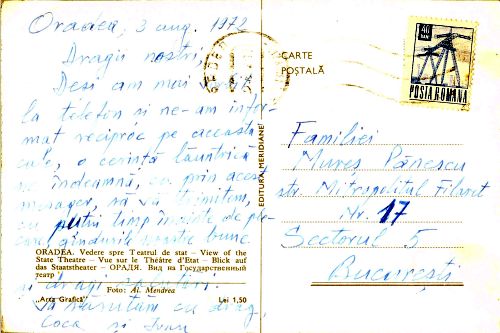 Oradea, 3 aug. 1972
Dragii noștri,
Deși am mai vorbit
la telefon și ne-am infor-
mat reciproc pe această
cale, o cerință lăuntrică
ne îndeamnă, ca prin acest
mesager, să vă trimitem,
cu puțin timp înainte de ple-
care, gândurile noastre bune
ORADEA. Vedere spre Teatrul de stat – View of the
State Theatre – Vue sur le Théâtre d'Etat – Blick auf
das Staatstheater – ОРАДЯ. Вид на Государственный
театр
și dragi
Foto: Al. Mendrea
"Arta Grafică"
Lei 1,50
Vă sărutăm cu drag,
Coca și
EDITURA MERIDIANE
CARTE
POȘTALĂ
40
BANI
POSTA ROMANA
Familiei
Mureș Pănescu
str. Mitropolitul Filaret
Nr. 17
Sectorul 5
București